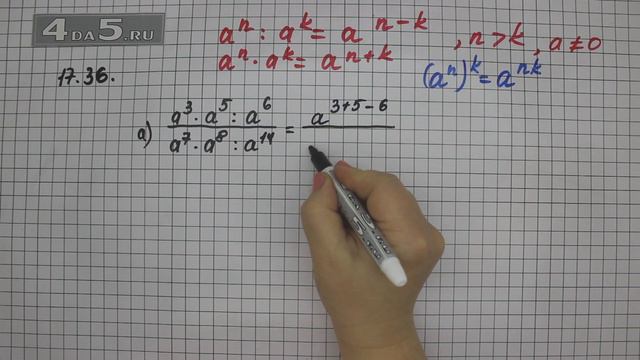 4DA5.RU
aⁿ : aᵏ = aⁿ⁻ᵏ , n > k, a ≠ 0
aⁿ · aᵏ = aⁿ⁺ᵏ
(aⁿ)ᵏ = aⁿᵏ
17.36.
а) (a³ · a⁵ : a⁶)/(a⁷ · a⁸ : a¹⁴) = a³⁺⁵⁻⁶